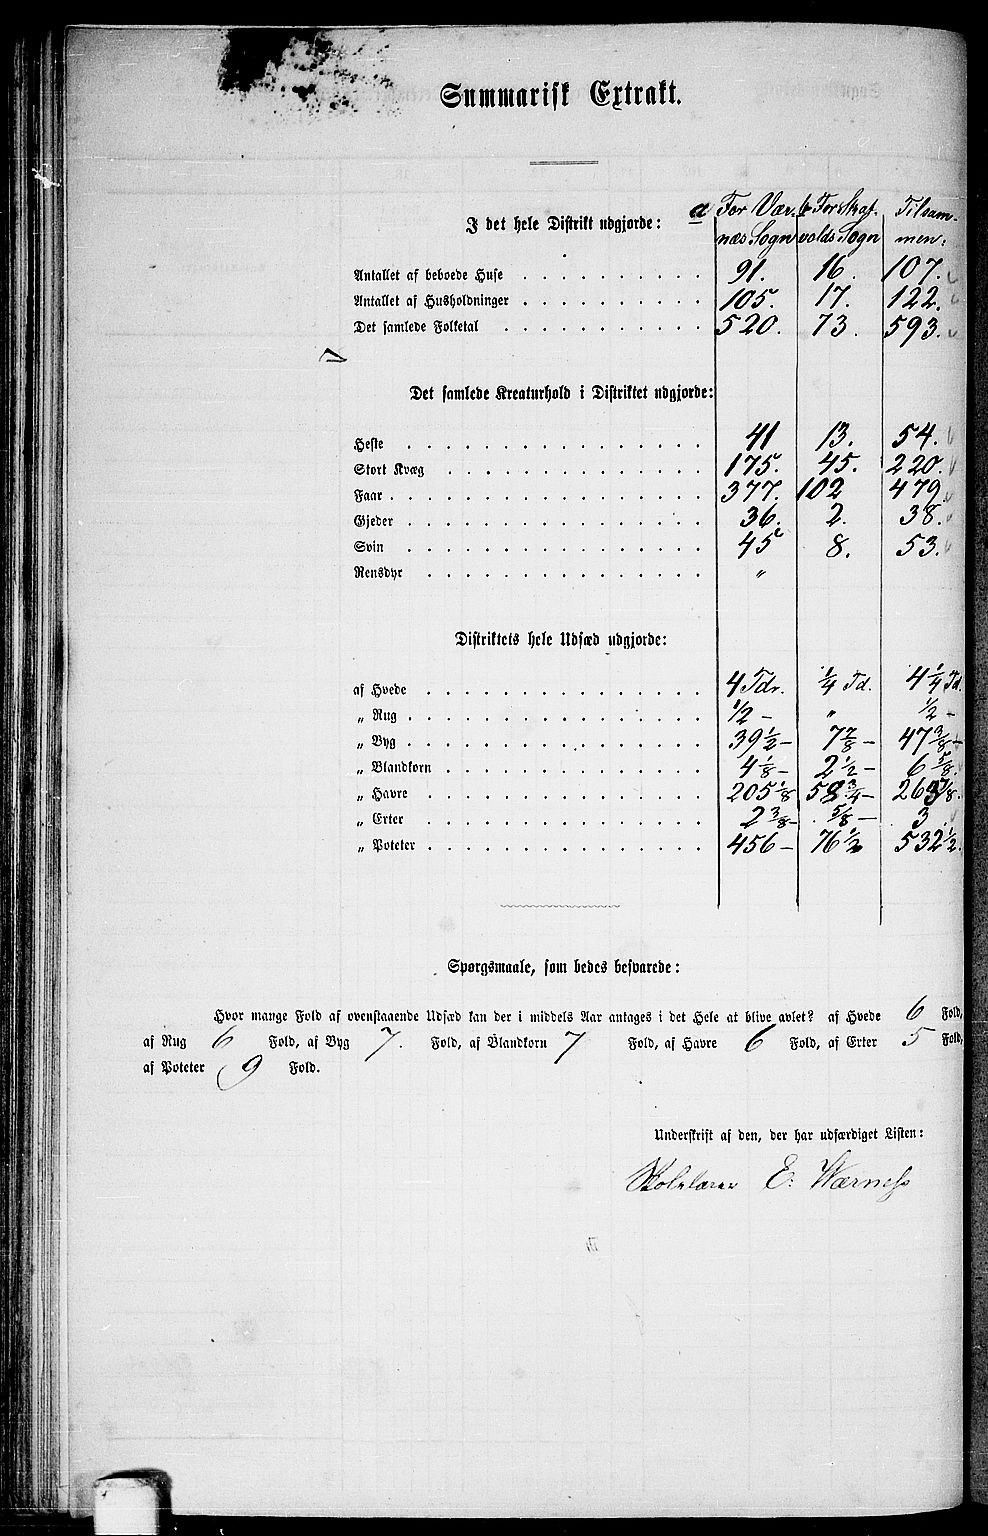 Summarisk Extrakt.
I det hele Distrikt udgjorde: a For Vær- b For Skat- Tilsam-
næs Sogn valds Sogn men:
Antallet af beboede Huse 91. 16. 107.
Antallet af Husholdninger 105. 17. 122.
Det samlede Folketal 520. 73. 593.
Det samlede Kreaturhold i Distriktet udgjorde:
Heste 41 13. 54.
Stort Kvæg 175. 45. 220.
Faar 377. 102 479
Gjeder 36. 2. 38.
Svin 45 8. 53.
Rensdyr „
Distriktets hele Udsæd udgjorde:
af Hvede 4 Tdr. 1/4 Td. 4 1/4 Td.
„ Rug 1/2 – „ 1/2 –
„ Byg 39 1/2 – 7 7/8 – 47 3/8 –
„ Blandkorn 4 1/8 – 2 1/2 – 6 5/8.
„ Havre 205 1/8 58 3/4 – 263 7/8.
„ Erter 2 3/8 – 5/8 – 3
„ Poteter 456 – 76 1/2 532 1/2.
Spørgsmaale, som bedes besvarede:
Hvor mange Fold af ovenstaaende Udsæd kan der i middels Aar antages i det Hele at blive avlet? af Hvede 6 Fold,
af Rug 6 Fold, af Byg 7. Fold, af Blandkorn 7 Fold, af Havre 6 Fold, af Erter 5 Fold,
af Poteter 9 Fold.
Underskrift af den, der har udfærdiget Listen:
Skolelærer E. Wærness